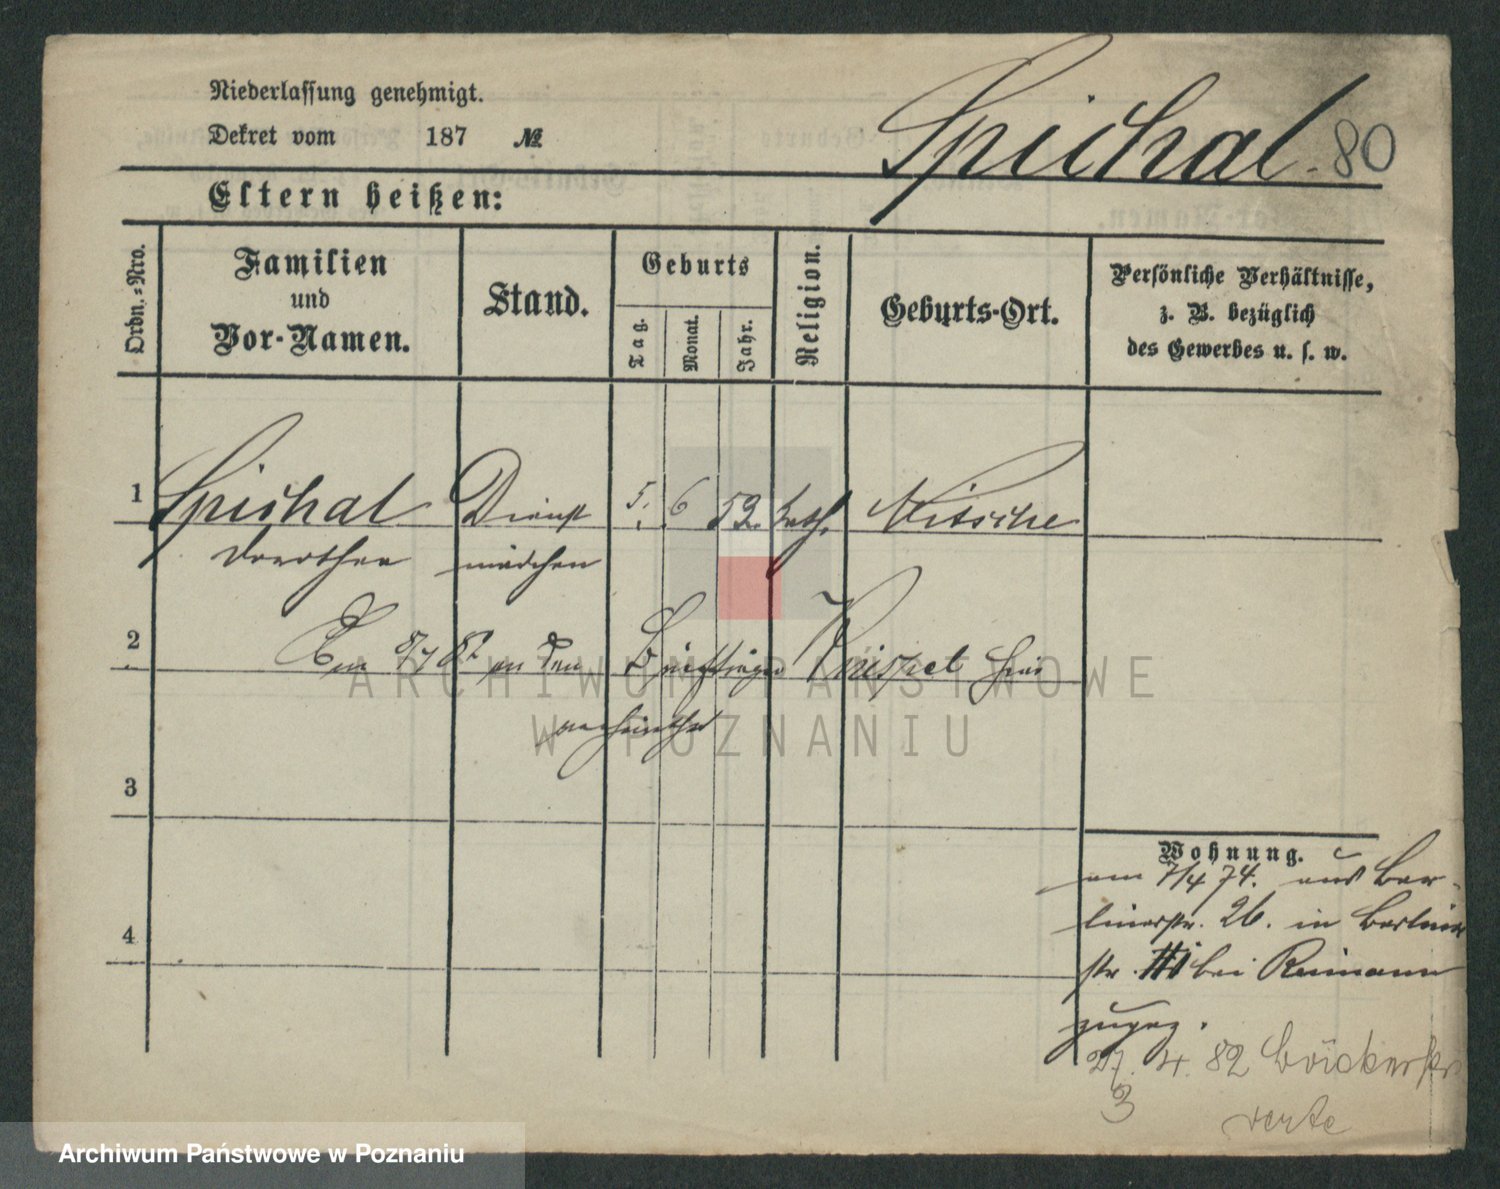 Niederlassung genehmigt.
Dekret vom 187 №
Spichal 80
Eltern heißen:
Ordn.-Nro.
Familien
und
Vor-Namen.
Stand.
Geburts
Tag.
Monat.
Jahr.
Religion.
Geburts-Ort.
Persönliche Verhältnisse,
z. B. bezüglich
des Gewerbes u. s. w.
1 Spichal Dienst 5. 6 52. kath. Nitsche
Dorothea mädchen
2 Am 8/7 an den Krispel hier
verheirathet
3
4
Wohnung.
am 7/4 74. aus Ber-
linerstr. 26. in Berliner
str. bei Reimann
zugez.
27. 4. 82 Bäckerstr
3
verte
ARCHIWUM PAŃSTWOWE
W POZNANIU
Archiwum Państwowe w Poznaniu